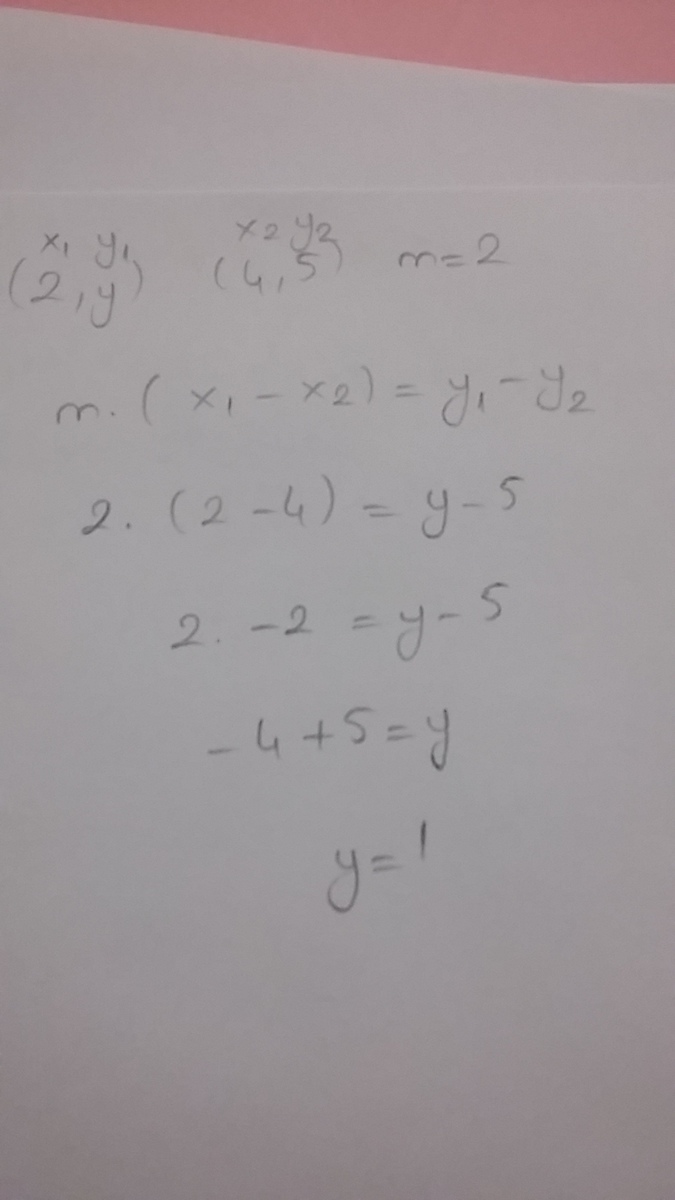 x₁ y₁ x₂ y₂
(2, y) (4, 5) m = 2
m. (x₁ - x₂) = y₁ - y₂
2. (2 - 4) = y - 5
2. -2 = y - 5
-4 + 5 = y
y = 1